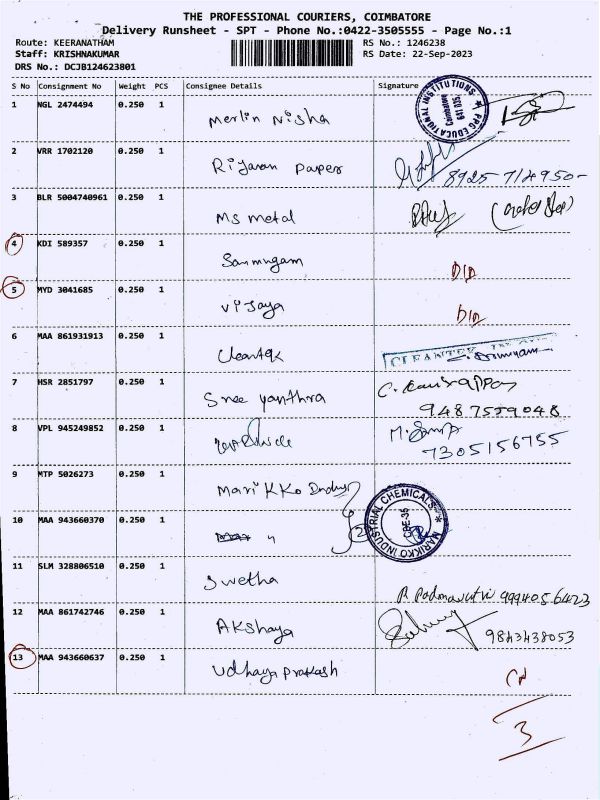 THE PROFESSIONAL COURIERS, COIMBATORE
Delivery Runsheet - SPT - Phone No.:0422-3505555 - Page No.:1
Route: KEERANATHAM RS No.: 1246238
Staff: KRISHNAKUMAR RS Date: 22-Sep-2023
DRS No.: DCJB124623801
S No Consignment No Weight PCS Consignee Details Signature
1 NGL 2474494 0.250 1 Merlin Nisha
PPG EDUCATIONAL INSTITUTIONS Coimbatore 641 035
2 VRR 1702120 0.250 1 Papers 8925714950-
3 BLR 5004740961 0.250 1 MS metal
4 KDI 589357 0.250 1 Sanmugam D/D
5 MYD 3041685 0.250 1 Vijaya D/D
6 MAA 861931913 0.250 1 Cleantek CLEANTEK
7 HSR 2851797 0.250 1 Sree yanthra
9487559048
8 VPL 945249852 0.250 1
7305156755
9 MTP 5026273 0.250 1 Marikko
MARIKKO INDUSTRIAL CHEMICALS CBE-35
10 MAA 943660370 0.250 1 " 2
11 SLM 328806510 0.250 1 Swetha R Padmavathi 9994056423
12 MAA 861742746 0.250 1 AKshaya 9843438053
13 MAA 943660637 0.250 1 Udhaya prakash
3